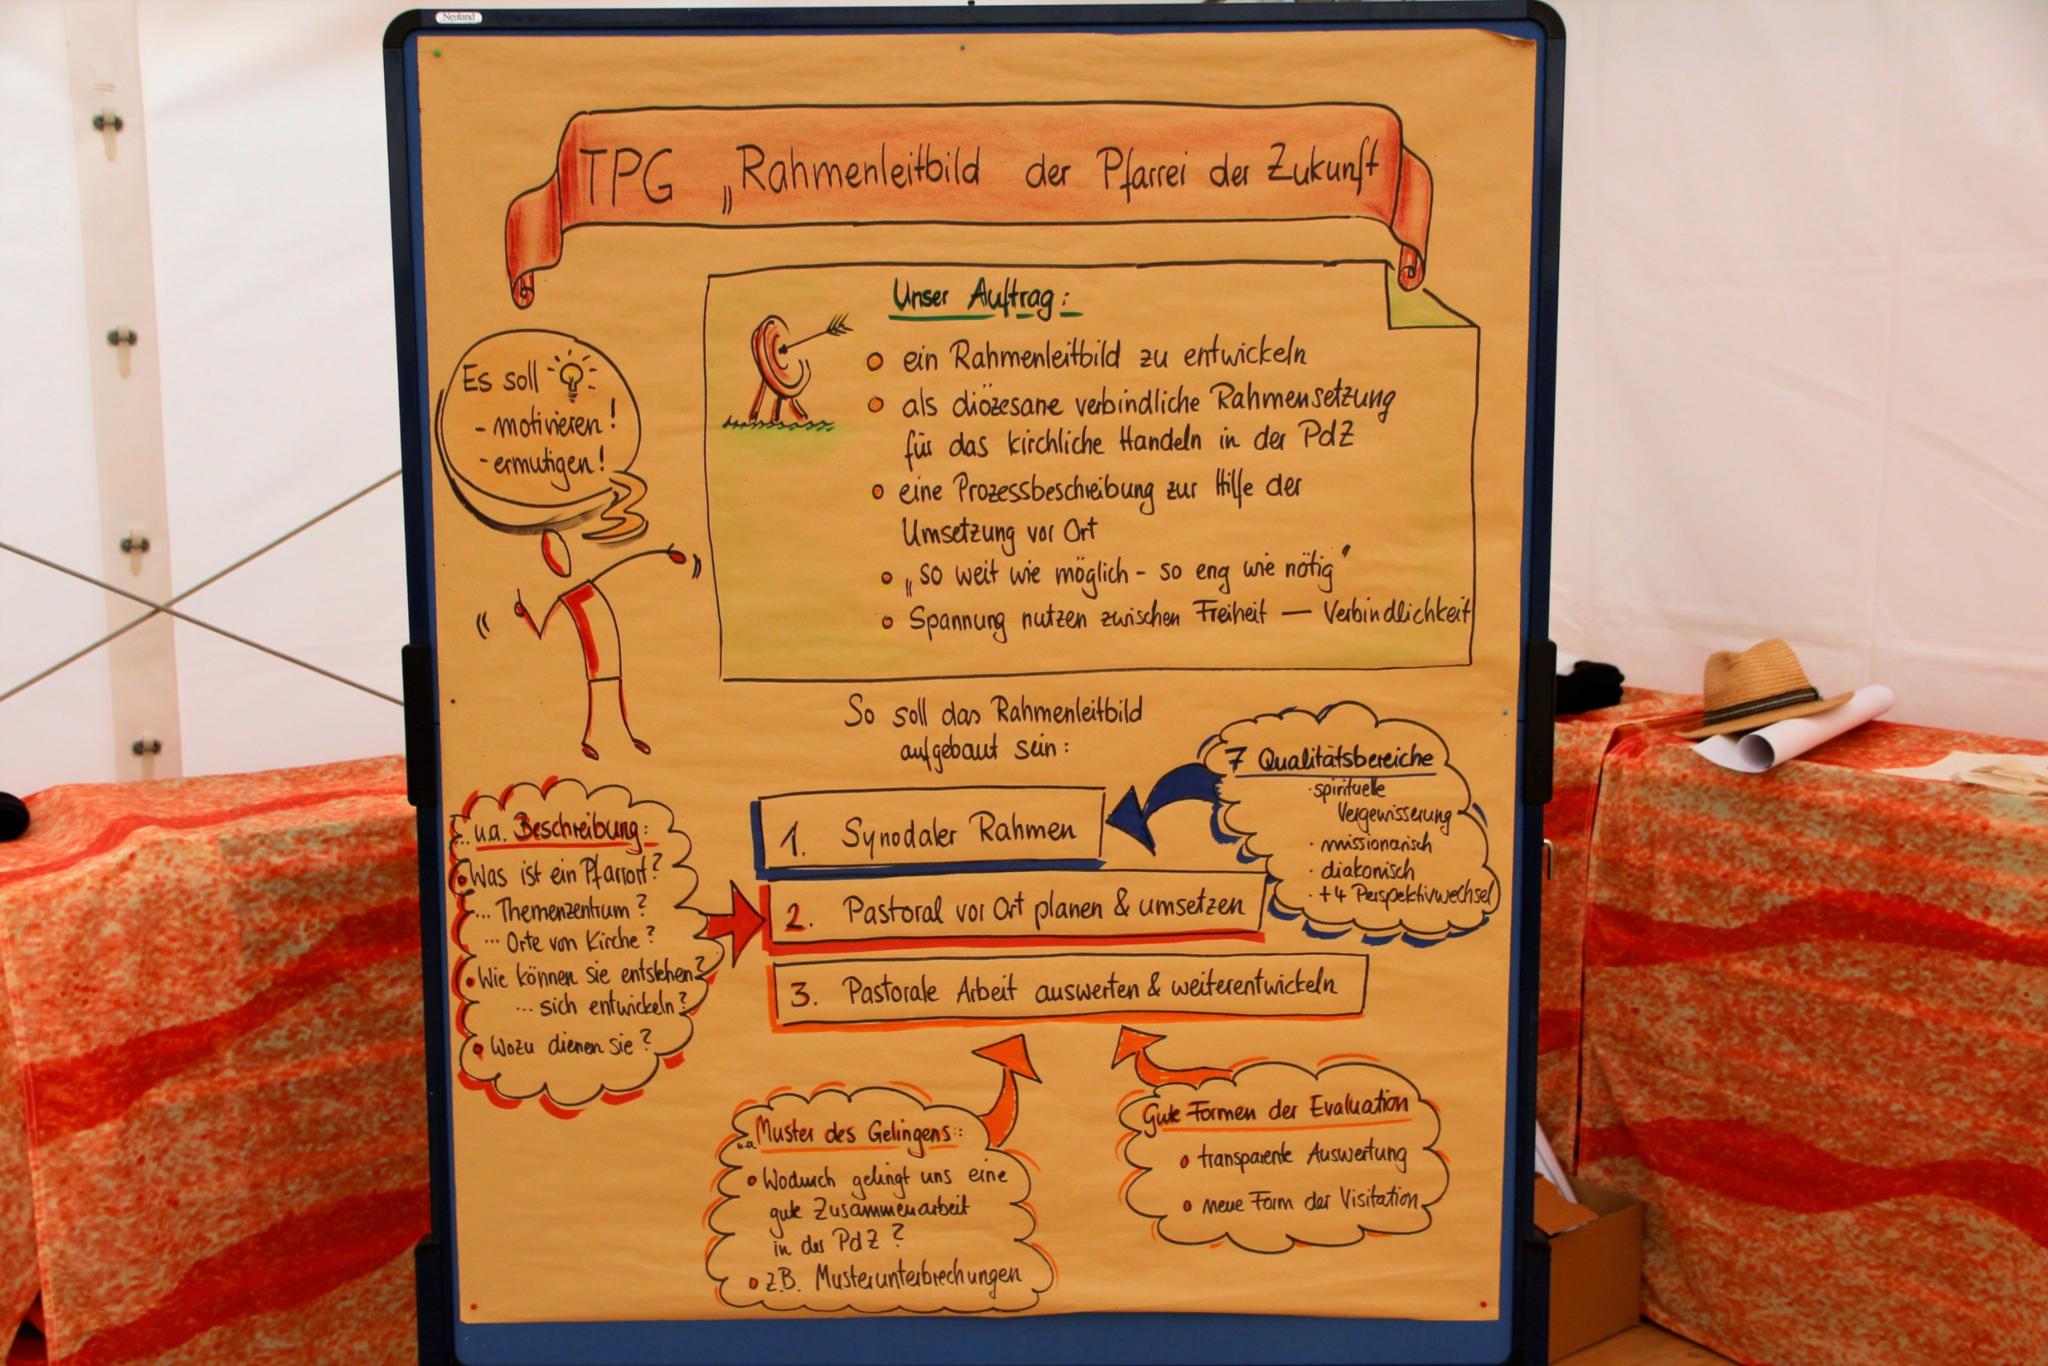 Neuland
TPG „Rahmenleitbild der Pfarrei der Zukunft
Unser Auftrag:
ein Rahmenleitbild zu entwickeln
als diözesane verbindliche Rahmensetzung
für das kirchliche Handeln in der PdZ
eine Prozessbeschreibung zur Hilfe der
Umsetzung vor Ort
„so weit wie möglich - so eng wie nötig"
Spannung nutzen zwischen Freiheit — Verbindlichkeit
Es soll
- motivieren!
- ermutigen!
So soll das Rahmenleitbild
aufgebaut sein:
1. Synodaler Rahmen
2. Pastoral vor Ort planen & umsetzen
3. Pastorale Arbeit auswerten & weiterentwickeln
7 Qualitätsbereiche
· spirituelle
Vergewisserung
· missionarisch
· diakonisch
· +4 Perspektivwechsel
... u.a. Beschreibung:
Was ist ein Pfarrort?
... Themenzentrum?
... Orte von Kirche?
Wie können sie entstehen?
... sich entwickeln?
Wozu dienen sie?
u.a. Muster des Gelingens:
Wodurch gelingt uns eine
gute Zusammenarbeit
in der PdZ?
z.B. Musterunterbrechungen
Gute Formen der Evaluation
transparente Auswertung
neue Form der Visitation